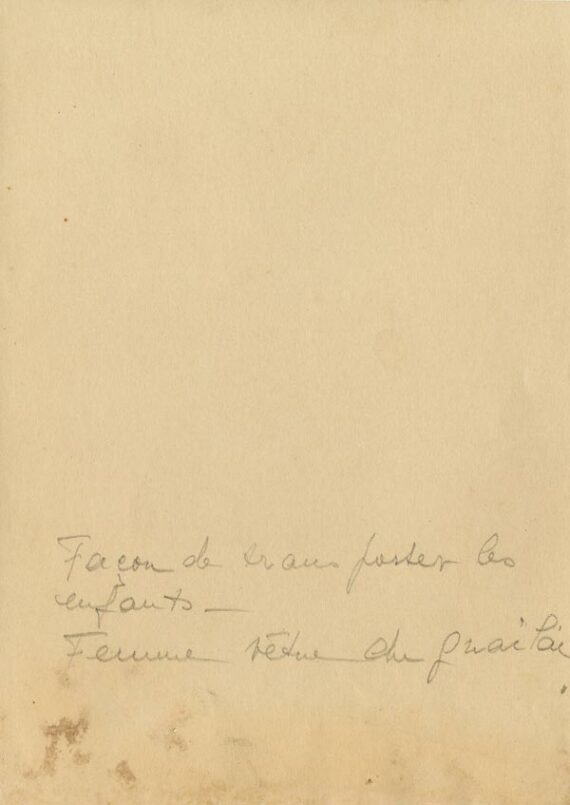 Façon de transporter les
enfants —
Femme vêtue du